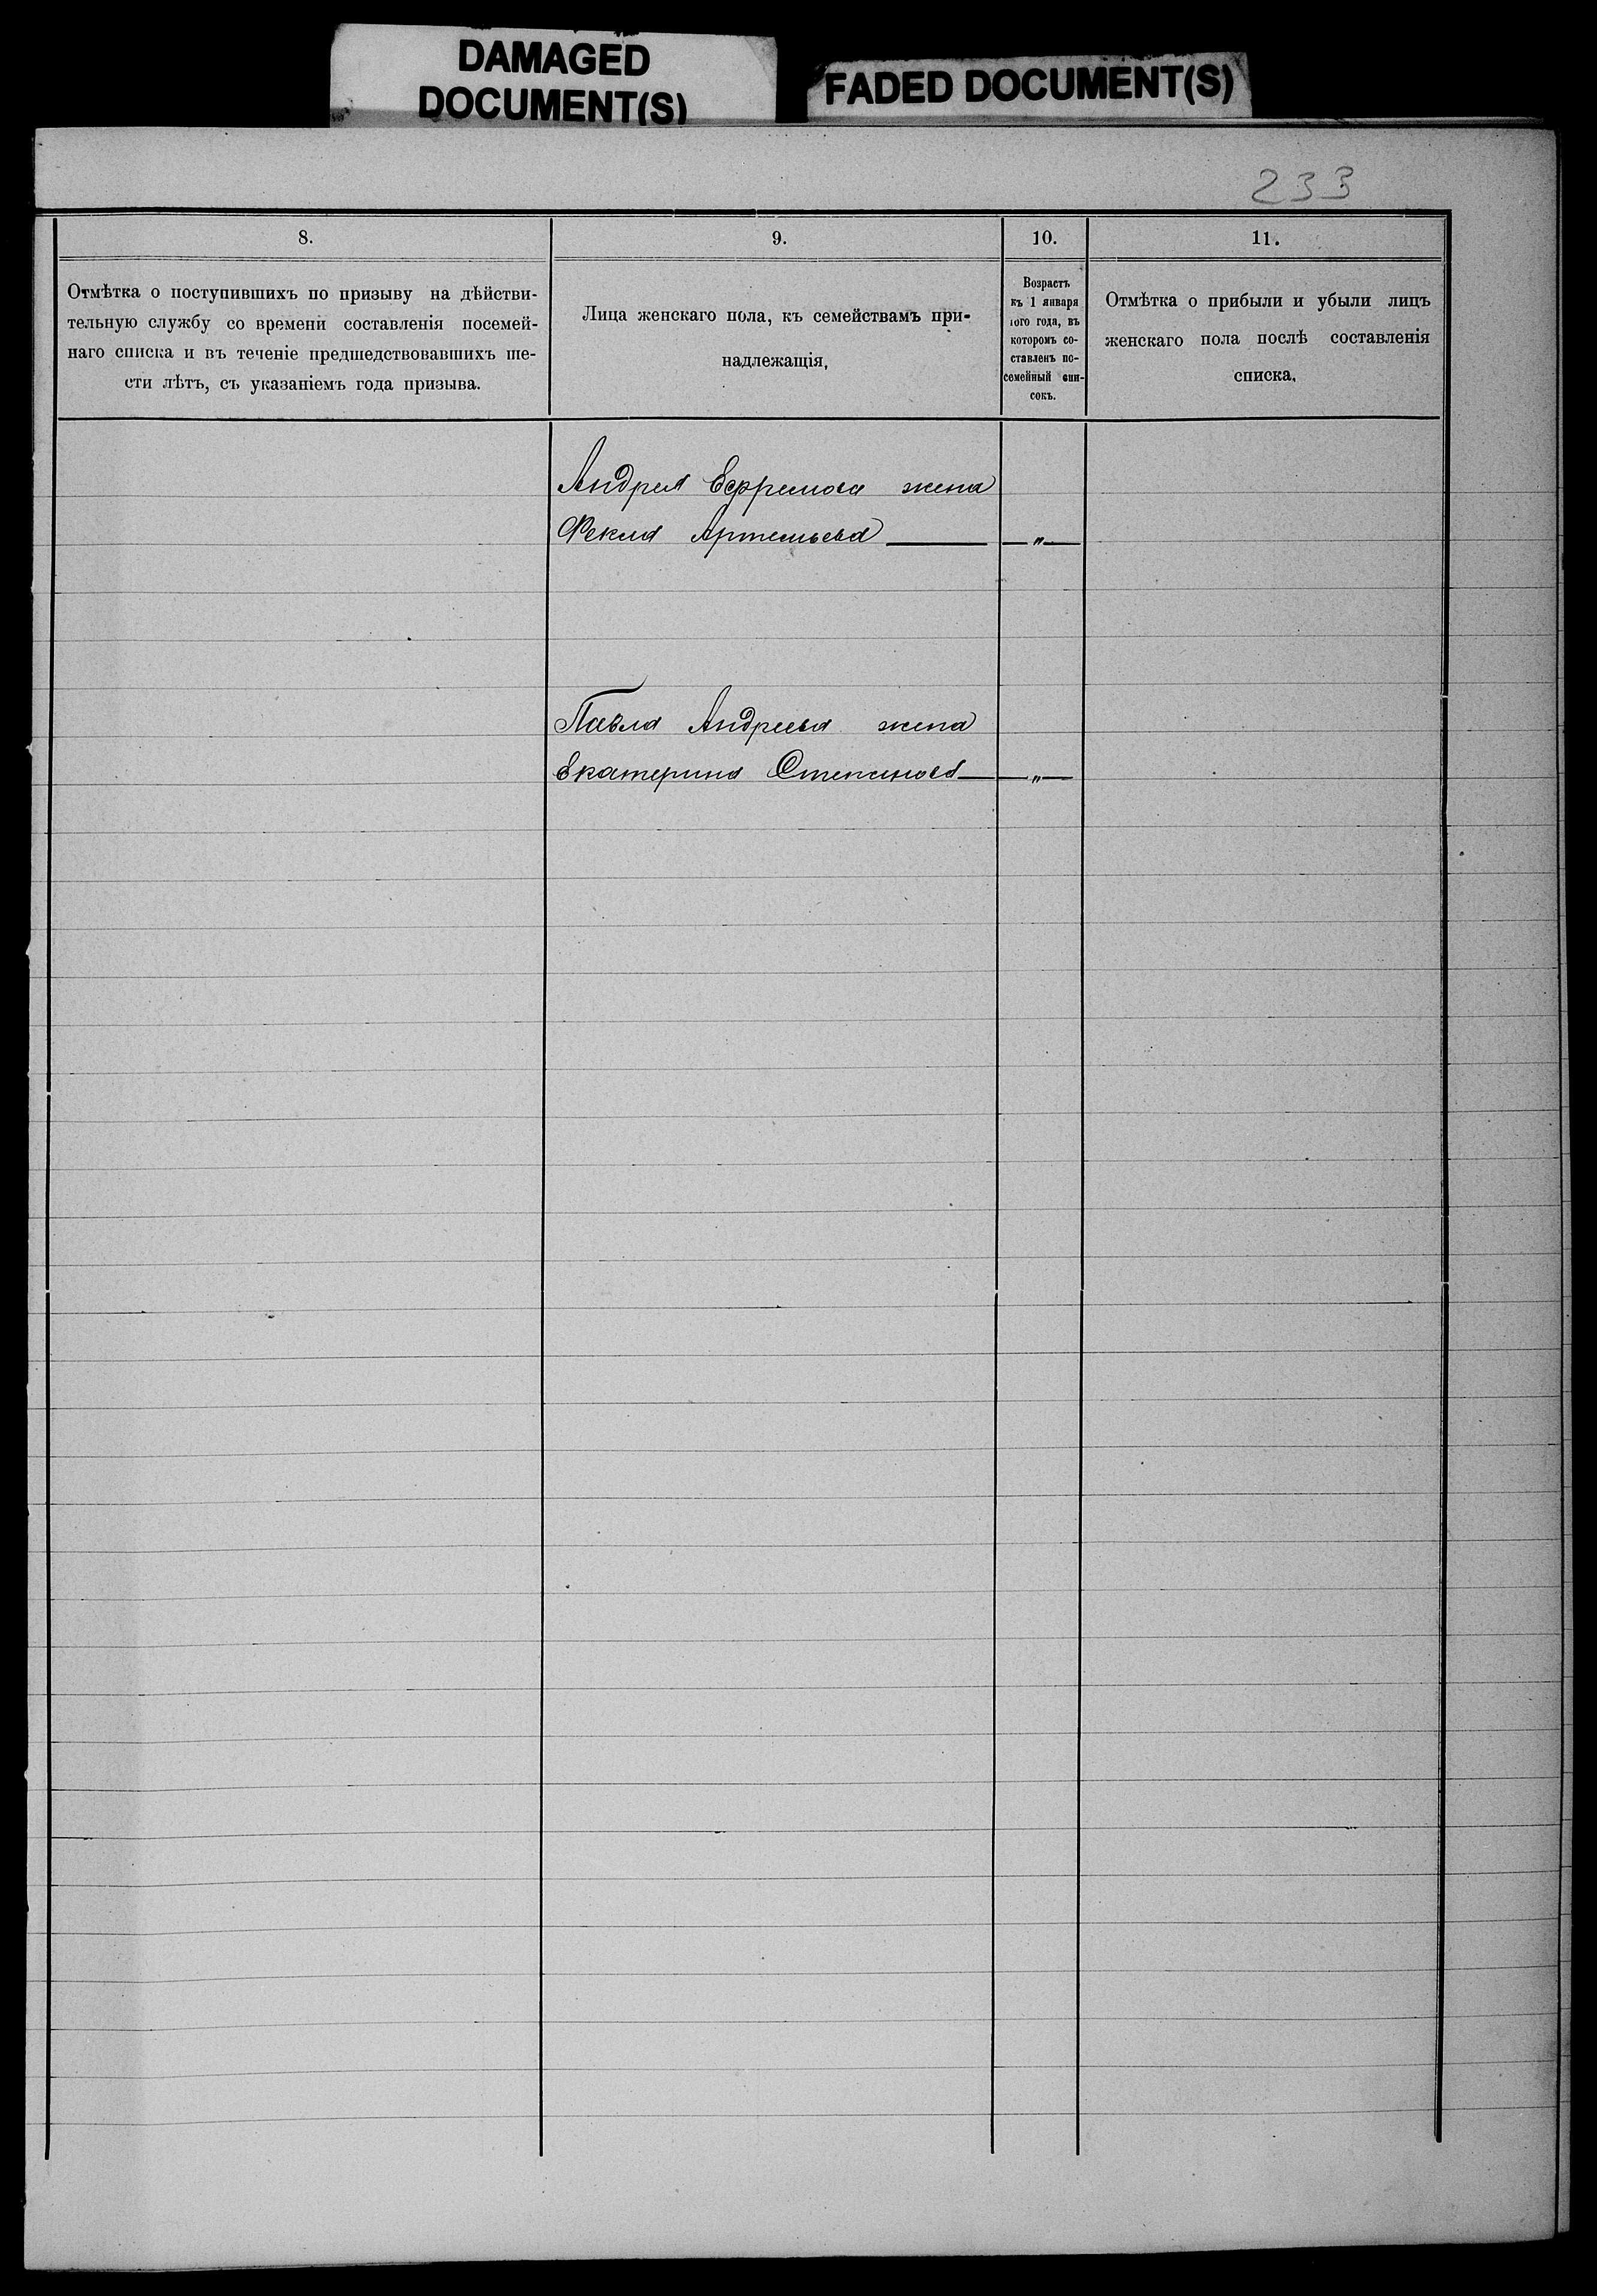 DAMAGED
DOCUMENT(S)
FADED DOCUMENT(S)
233
8.
9.
10.
11.
Отмѣтка о поступившихъ по призыву на дѣйстви-
тельную службу со времени составленія посемей-
наго списка и въ теченіе предшедствовавшихъ ше-
сти лѣтъ, съ указаніемъ года призыва.
Лица женскаго пола, къ семействамъ при-
надлежащія,
Возрастъ
къ 1 января
того года, въ
которомъ со-
ставленъ по-
семейный спи-
сокъ.
Отмѣтка о прибыли и убыли лицъ
женскаго пола послѣ составленія
списка.
Андрея Ефремова жена
Фекла Артемьева — „ —
Павла Андреева жена
Екатерина Степанова — „ —